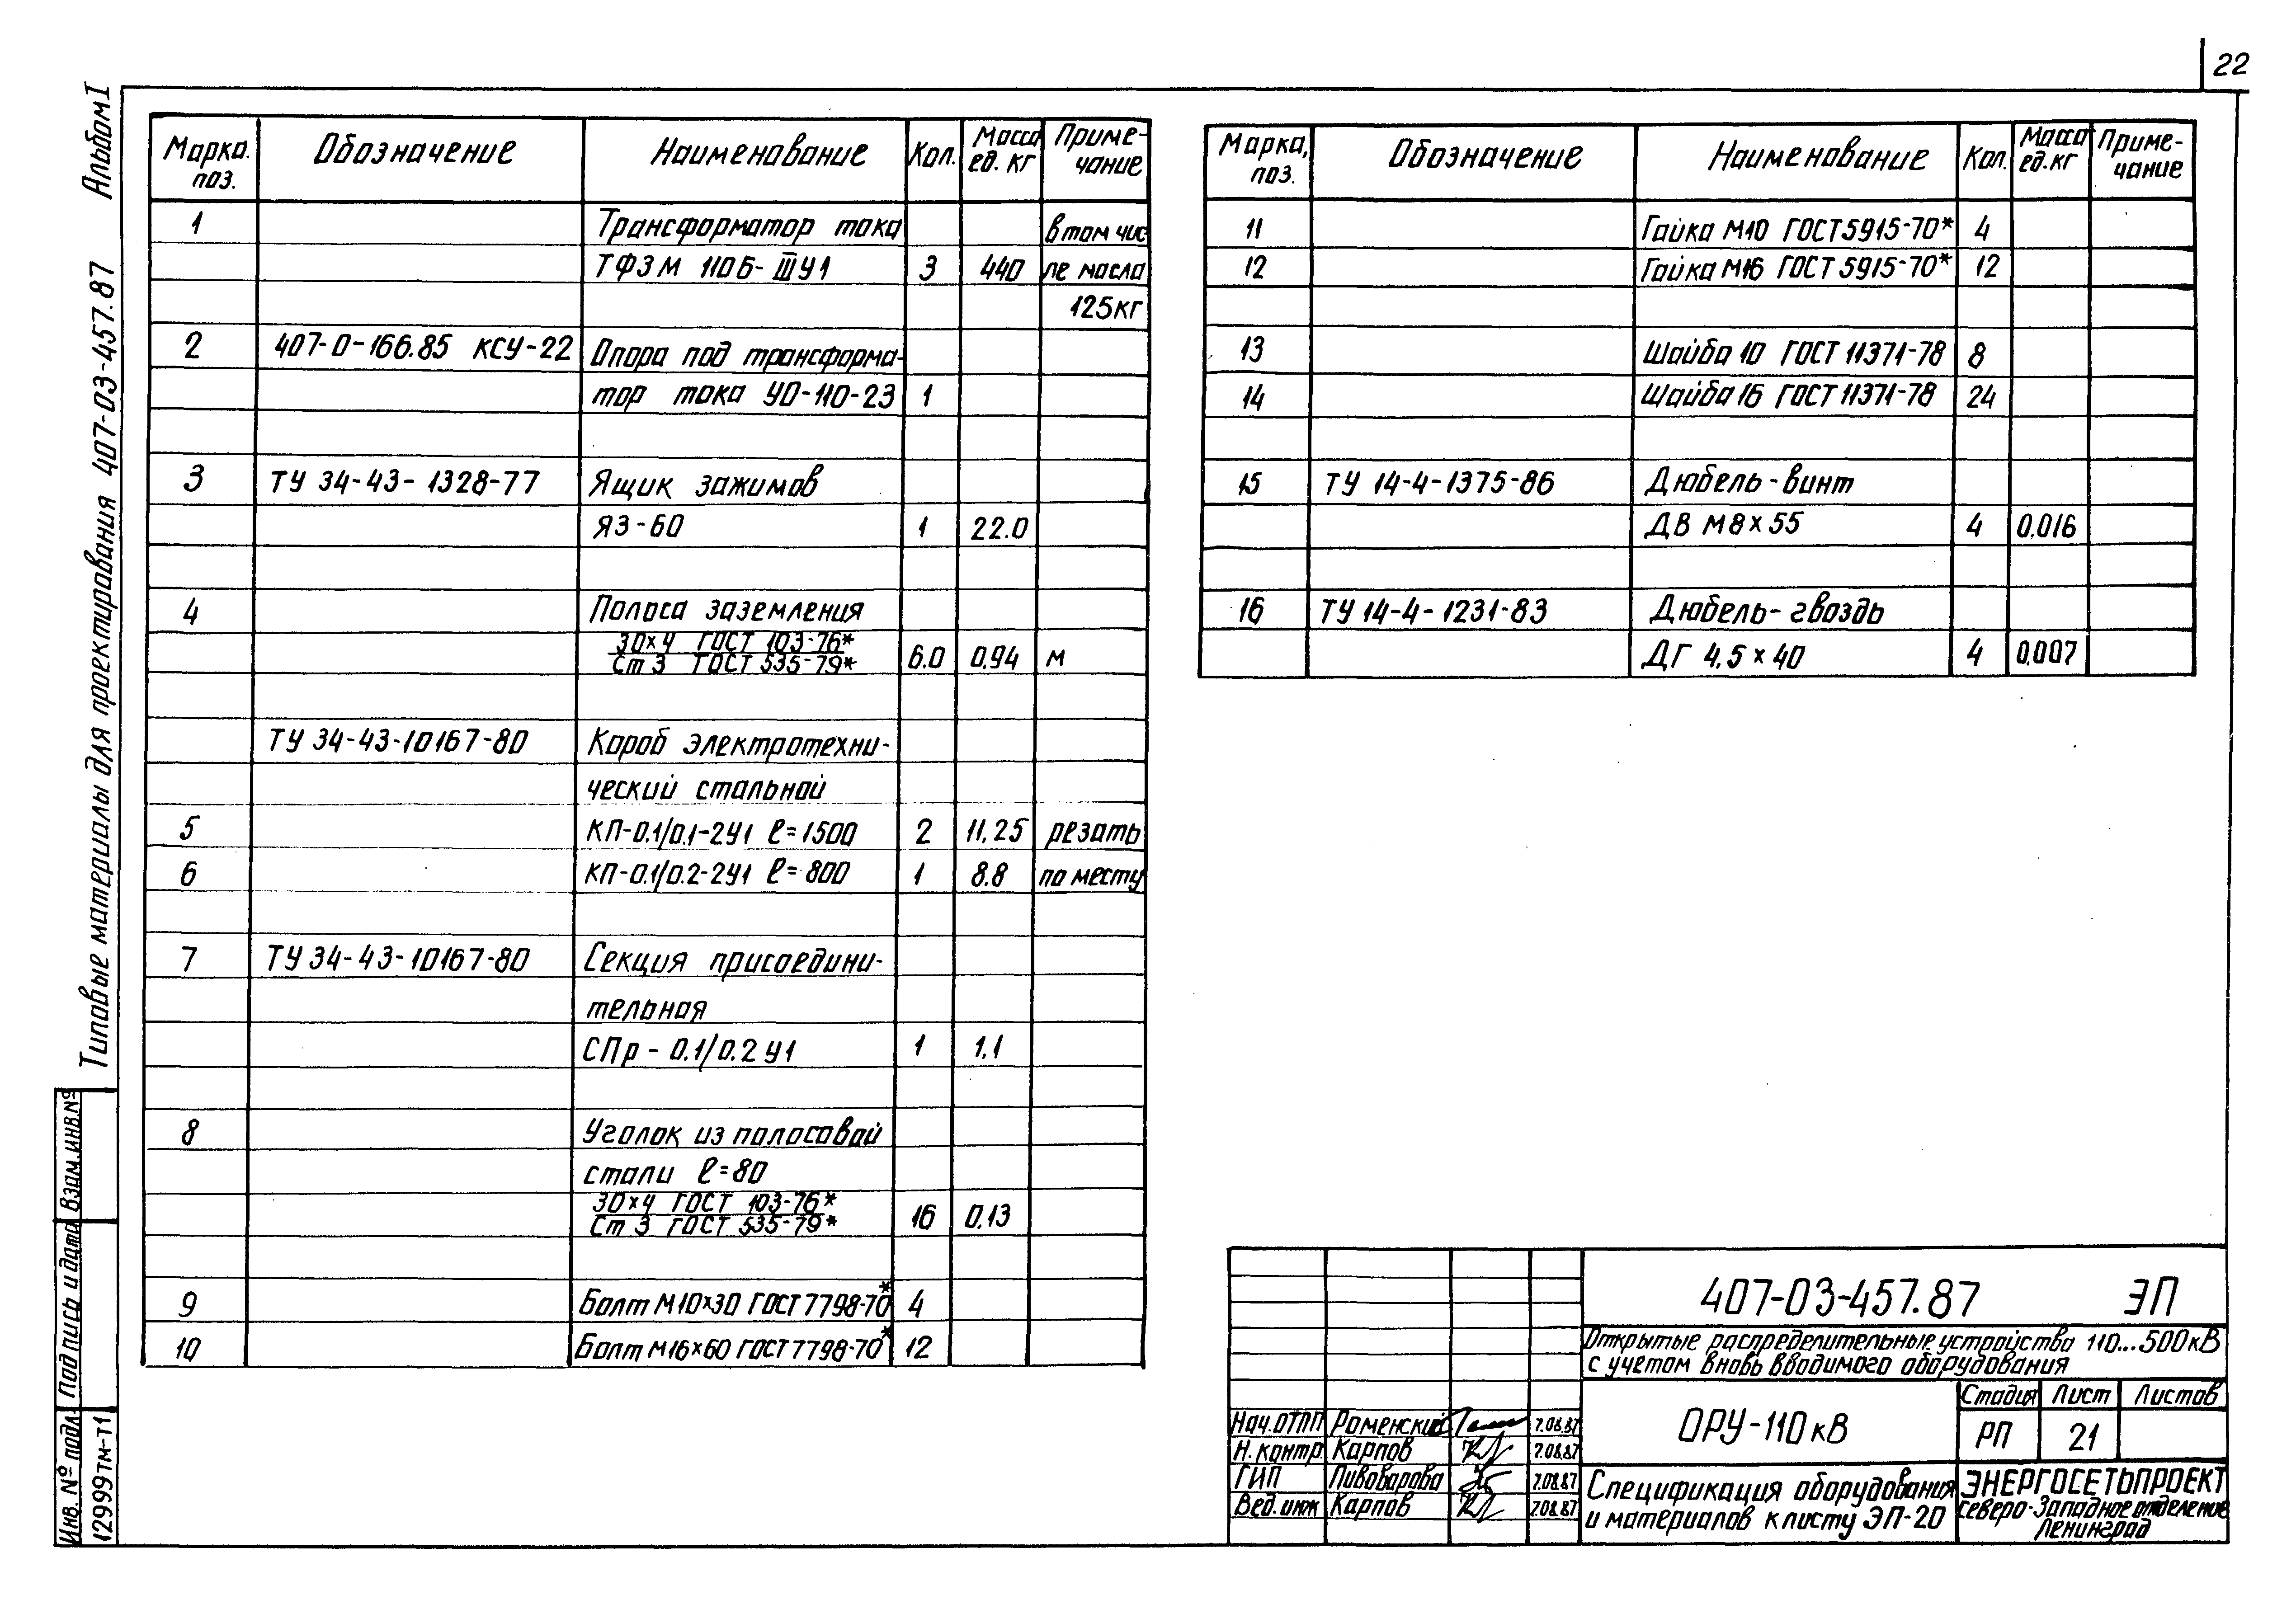 22
Альбом I
Типовые материалы для проектирования 407-03-457.87
Марка. поз. Обозначение Наименование Кол. Масса ед. кг Приме-чание
1 Трансформатор тока в том чис
ТФЗМ 110Б-III У1 3 440 ле масла
125кг
2 407-0-166.85 КСУ-22 Опора под трансформа-
тор тока УО-110-23 1
3 ТУ 34-43-1328-77 Ящик зажимов
ЯЗ-60 1 22.0
4 Полоса заземления
30×4 ГОСТ 103-76*
Ст 3 ГОСТ 535-79* 6.0 0,94 м
ТУ 34-43-10167-80 Короб электротехни-
ческий стальной
5 КП-0.1/0.1-2У1 ℓ=1500 2 11,25 резать
6 КП-0.1/0.2-2У1 ℓ=800 1 8.8 по месту
7 ТУ 34-43-10167-80 Секция присоедини-
тельная
СПр-0.1/0.2 У1 1 1,1
8 Уголок из полосовой
стали ℓ=80
30×4 ГОСТ 103-76*
Ст 3 ГОСТ 535-79* 16 0,13
9 Болт М10×30 ГОСТ 7798-70* 4
10 Болт М16×60 ГОСТ 7798-70* 12
Марка, поз. Обозначение Наименование Кол. Масса ед.кг Приме-чание
11 Гайка М10 ГОСТ 5915-70* 4
12 Гайка М16 ГОСТ 5915-70* 12
13 Шайба 10 ГОСТ 11371-78 8
14 Шайба 16 ГОСТ 11371-78 24
15 ТУ 14-4-1375-86 Дюбель-винт
ДВ М8×55 4 0,016
16 ТУ 14-4-1231-83 Дюбель-гвоздь
ДГ 4,5×40 4 0,007
407-03-457.87 ЭП
Открытые распределительные устройства 110...500кВ
с учетом вновь вводимого оборудования
Нач.ОТПП Роменский 7.08.87
Н. контр. Карпов 7.08.87
ГИП Пивоварова 7.08.87
Вед. инж Карпов 7.08.87
ОРУ-110кВ
Стадия Лист Листов
РП 21
Спецификация оборудования
и материалов к листу ЭП-20
ЭНЕРГОСЕТЬПРОЕКТ
Северо-Западное отделение
Ленинград
Взам.инв.№
Подпись и дата
Инв. № подл.
12999тм-т1